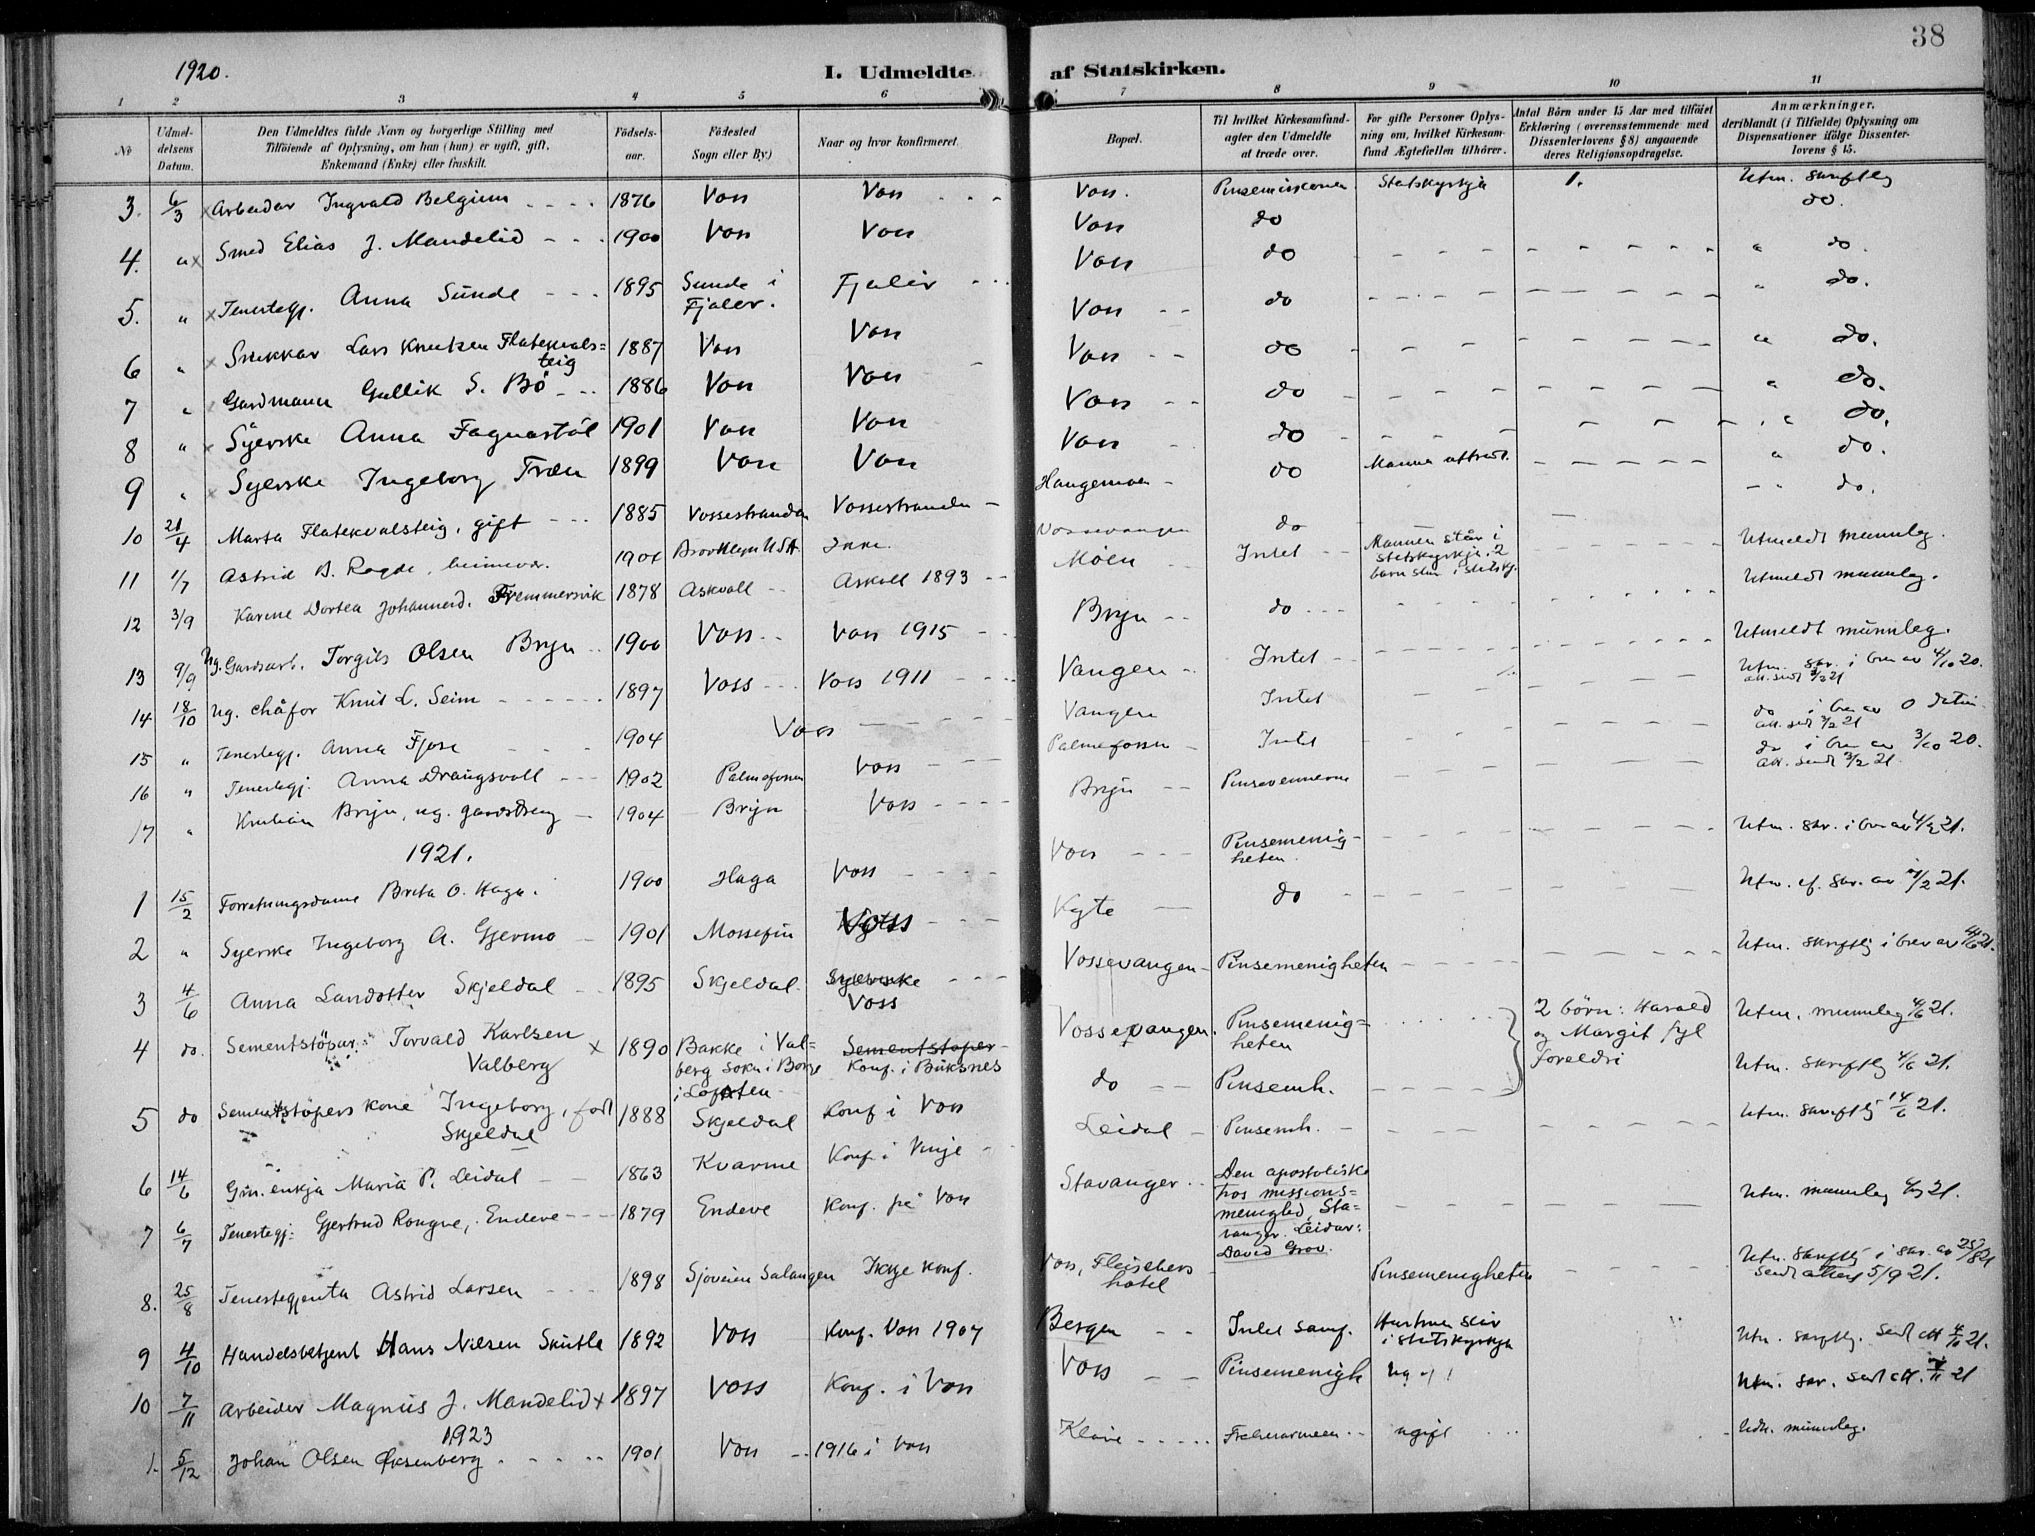 38
1920.
I. Udmeldte af Statskirken.
1 2 3 4 5 6 7 8 9 10 11
No
Udmeldelsens Datum.
Den Udmeldtes fulde Navn og borgerlige Stilling med
Tilföiende af Oplysning, om han (hun) er ugift, gift,
Enkemand (Enke) eller fraskilt.
Födselsaar.
Födested
Sogn eller By.)
Naar og hvor konfirmeret.
Bopæl.
Til hvilket Kirkesamfund-
agter den Udmeldte
at træde over.
For gifte Personer Oplys-
ning om, hvilket Kirkesam-
fund Ægtefællen tilhörer.
Antal Börn under 15 Aar med tilföiet
Erklæring (overensstemmende med
Dissenterlovens § 8) angaaende
deres Religionsopdragelse.
Anmærkninger,
deriblandt (i Tilfælde) Oplysning om
Dispensationer ifölge Dissenter-
lovens § 15.
3. 6/3 x Arbeider Ingvald Belgum 1876 Voss Voss Voss. Statskyrkja 1. Utm. skriftleg
4. " x Smed Elias J. Mandelid 1900 Voss Voss Voss do do.
5. " x Tenestegj. Anna Sunde 1895 Sunde i Fjaler. Fjaler Voss do " do.
6 " x Snikkar Lars Knutsen Flatekvalsteig 1887 Voss Voss Voss do " do.
7 " Gardmann Gullik S. Bö 1886 Voss Voss Voss do " do.
8 " x Syerske Anna Fagnastöl 1901 Voss Voss Voss do " do.
9 " x Syerske Ingeborg Træn 1899 Voss Voss Voss do " do.
10 21/4 Marta Flatekvalsteig, gift 1885 Vossestranden Vossestranden Haugamoen do Mannen do.
11 1/7 Astrid B. Ragde, heimevær. 1901 Brooklyn USA Ikke. Vossevangen do do.
12 3/9 Karine Dortea Johannesd. Fremmersvik 1878 Askvoll Askvoll 1893 Møen Intet Mannen står i statskyrkja. 2 barn står i statsky. Utmeldt munnleg.
13 9/9 Ug. Gardsarb. Torgils Olsen Bryn 1900 Voss Voss 1915 Bryn do Utmeldt munnleg.
14 18/10 Ug. chåfør Knut L. Seim 1897 Voss Voss 1911 Vangen Intet Utmeldt munnleg.
15 " Tenestegj. Anna Fjose 1904 Voss Vangen Intet Utm. skr. i brev av 4/10 20.
16 " Tenestegj. Anna Draugsvoll 1902 Palmafossen Voss Palmafossen Intet do i brev av
17 " Kristian Bryn, ug. gardsdreng 1904 Bryn Voss Bryn Pinsevennerne do i brev av 3/10 20. att. sendt 3/2 21.
1921.
1 15/2 Forretningsdame Brita O. Haga. 1900 Haga Voss Voss Pinsemenigheten. Utm. skr. i brev av 4/2 21.
2 " Syerske Ingeborg A. Gjermo 1901 Mossefin Voss Kyte do Utm. ef. skr. av
3 4/6 Anna Larsdotter Skjeldal 1895 Skjeldal Syerske Voss Vossevangen Pinsemenigheten Utm. skriftlig i brev av 4/6 21.
4 do. Sementstöpar Torvald Karlsen Valberg x 1890 Bakke i Valberg sokn i Borge i Lofoten Sementstøper Konf. i Buksnes Vossevangen. Pinsemenigheten 2 börn: Harald og Margit fyl foreldri Utm. munnleg 4/6 21.
5 do Sementstöpers kone Ingeborg, född Skjeldal 1888 Skjeldal Konf i Voss do Pinsemh. Utm. skriftlig 4/6 21.
6 14/6 Gm. enkja Maria P. Leidal 1863 Kvarme Konf i Vinje Leidal Pinsemh. Utm. skriftlig 14/6 21.
7 6/7 Tenestegj: Gjertrud Rongve, Endeve 1879 Endeve Konf. på Voss Stavanger Den apostoliske tros missionsmenighed, Stavanger. Leidar: David Grov. Utm. munnleg 21.
8. 25/8 Tenestegjenta Astrid Larsen 1898 Sjoveien Salangen Ikkje konf. Voss, Fleischers hotel Pinsemenigheten Utm. skriftlig i skr. av 25/8 21 Sendt attest 5/9 21.
9 4/10 Handelsbetjent Hans Nilsen Skutle 1892 Voss Konf. Voss 1907 Bergen Intet samf. Hustruen står i statskyrkja Utm. skriftlig. Sendt att 4/10 21.
10 7/11 Arbeider Magnus J. Mandelid x 1897 Voss Konf. i Voss Voss Pinsemenigh Ug Utm. skr. Sendt att. 21
1923
1. 5/12 Johan Olsen Øksenberg 1901 Voss 1916 i Voss Kløve Frelsesarmeen ugift Udm. munnleg.